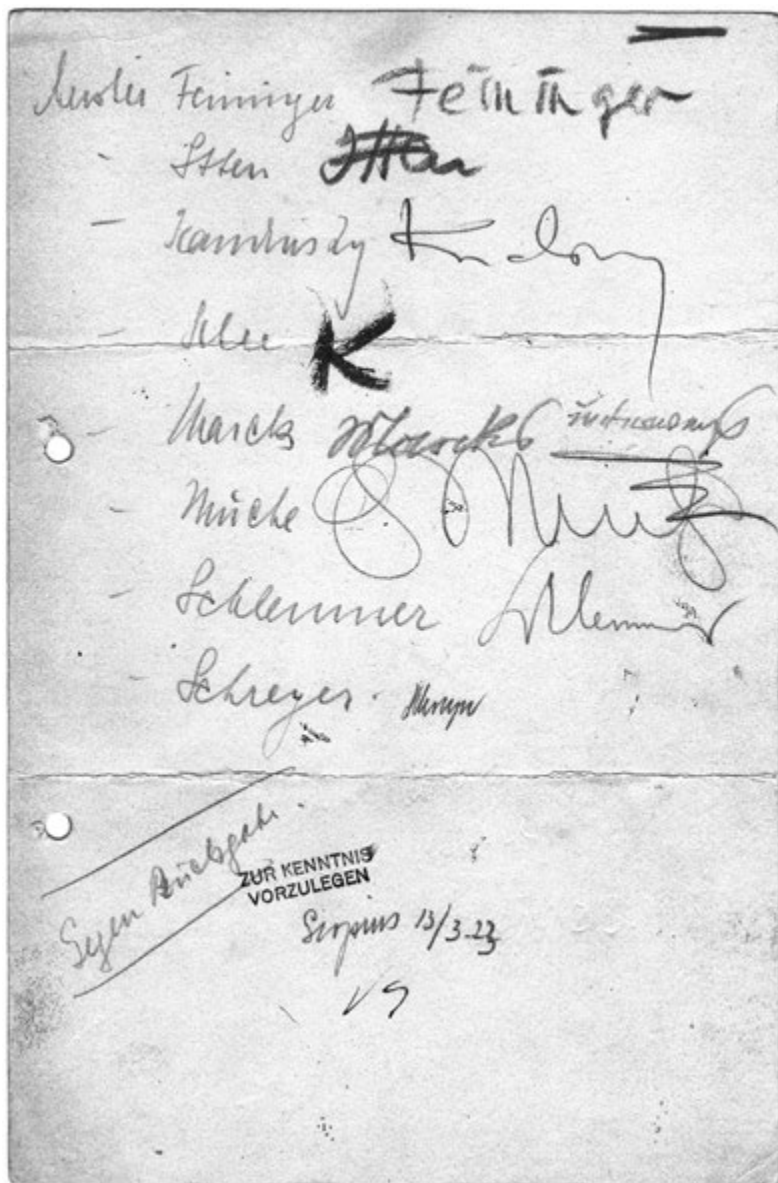 Meister Feininger Feininger
- Itten Itten
- Kandinsky
- Klee K
- Marcks Marcks
- Muche Muche
- Schlemmer Schlemmer
Schreyer. Schreyer
Gegen Rückgabe.
ZUR KENNTNIS
VORZULEGEN
13/3.23